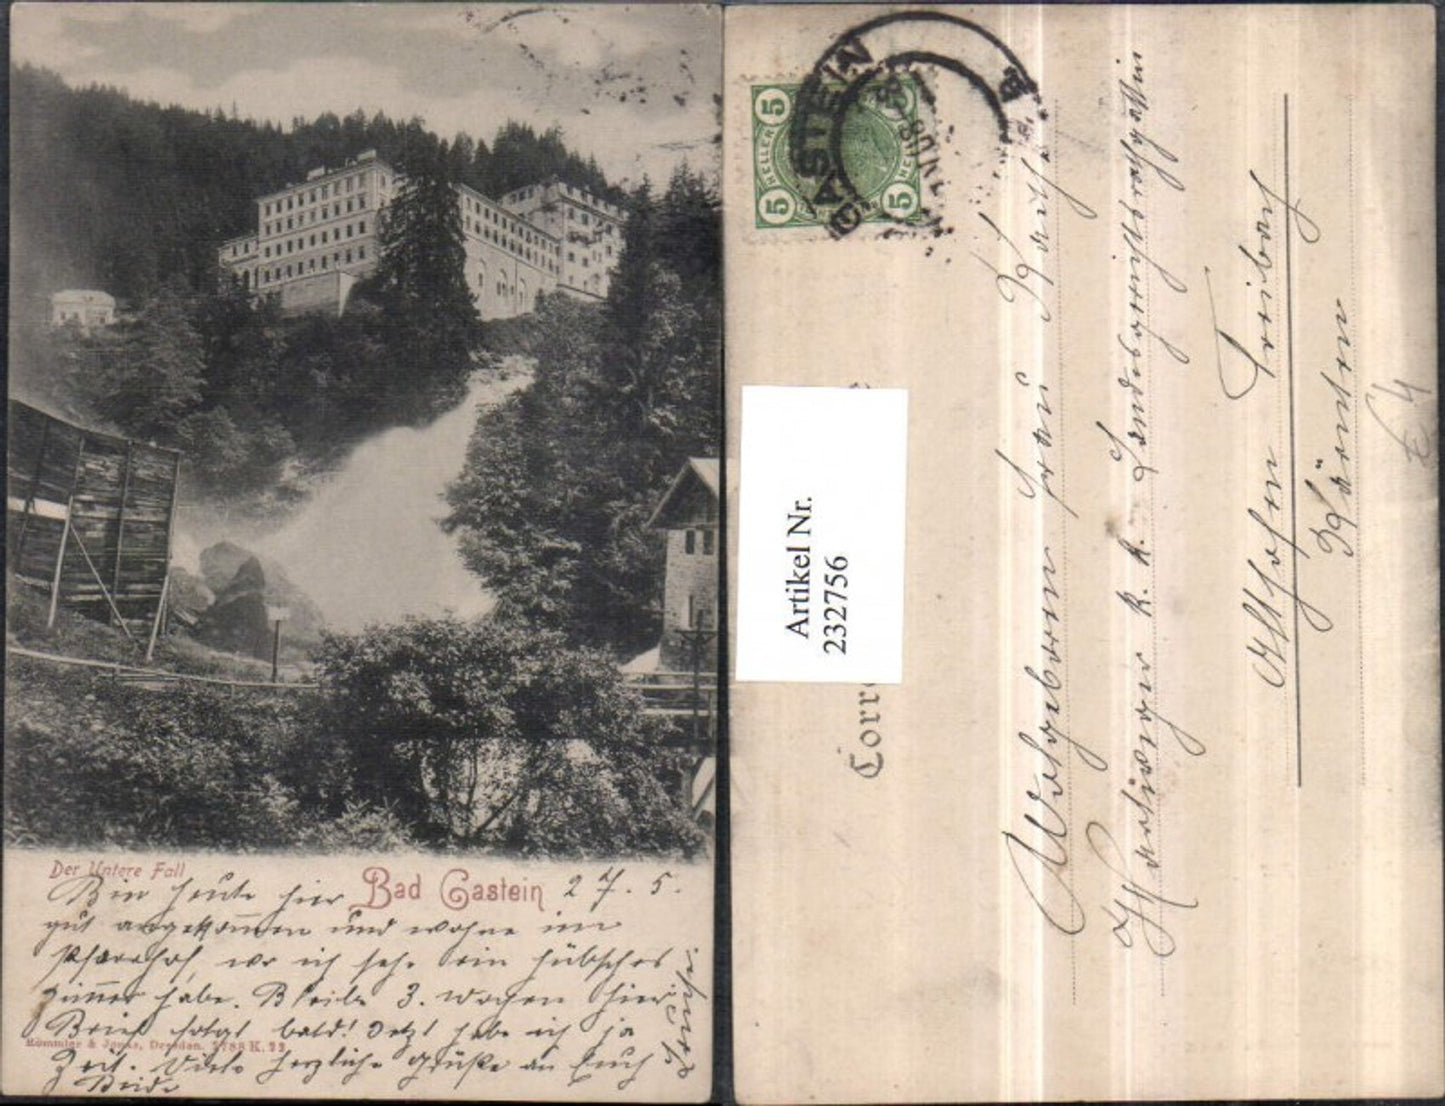 Der Untere Fall
Bad Gastein 27. 5.
Bin heute hier
gut angekommen und wohne im
Pfarrhof, wo ich sehr ein hübsches
Zimmer habe. Bleibe 3. Wochen hier
Brief folgt bald! Jetzt habe ich ja
Zeit. Viele herzliche Grüße an Euch
Beide
Römmler & Jonas, Dresden. 7788 K. 22.
5
HELLER
5
5
GASTEIN
Artikel Nr.
232756
Corre
Wohlgeboren Frau Käthe
k. k. Landesgerichtsrathgattin
Althofen Treibach
Kärnten